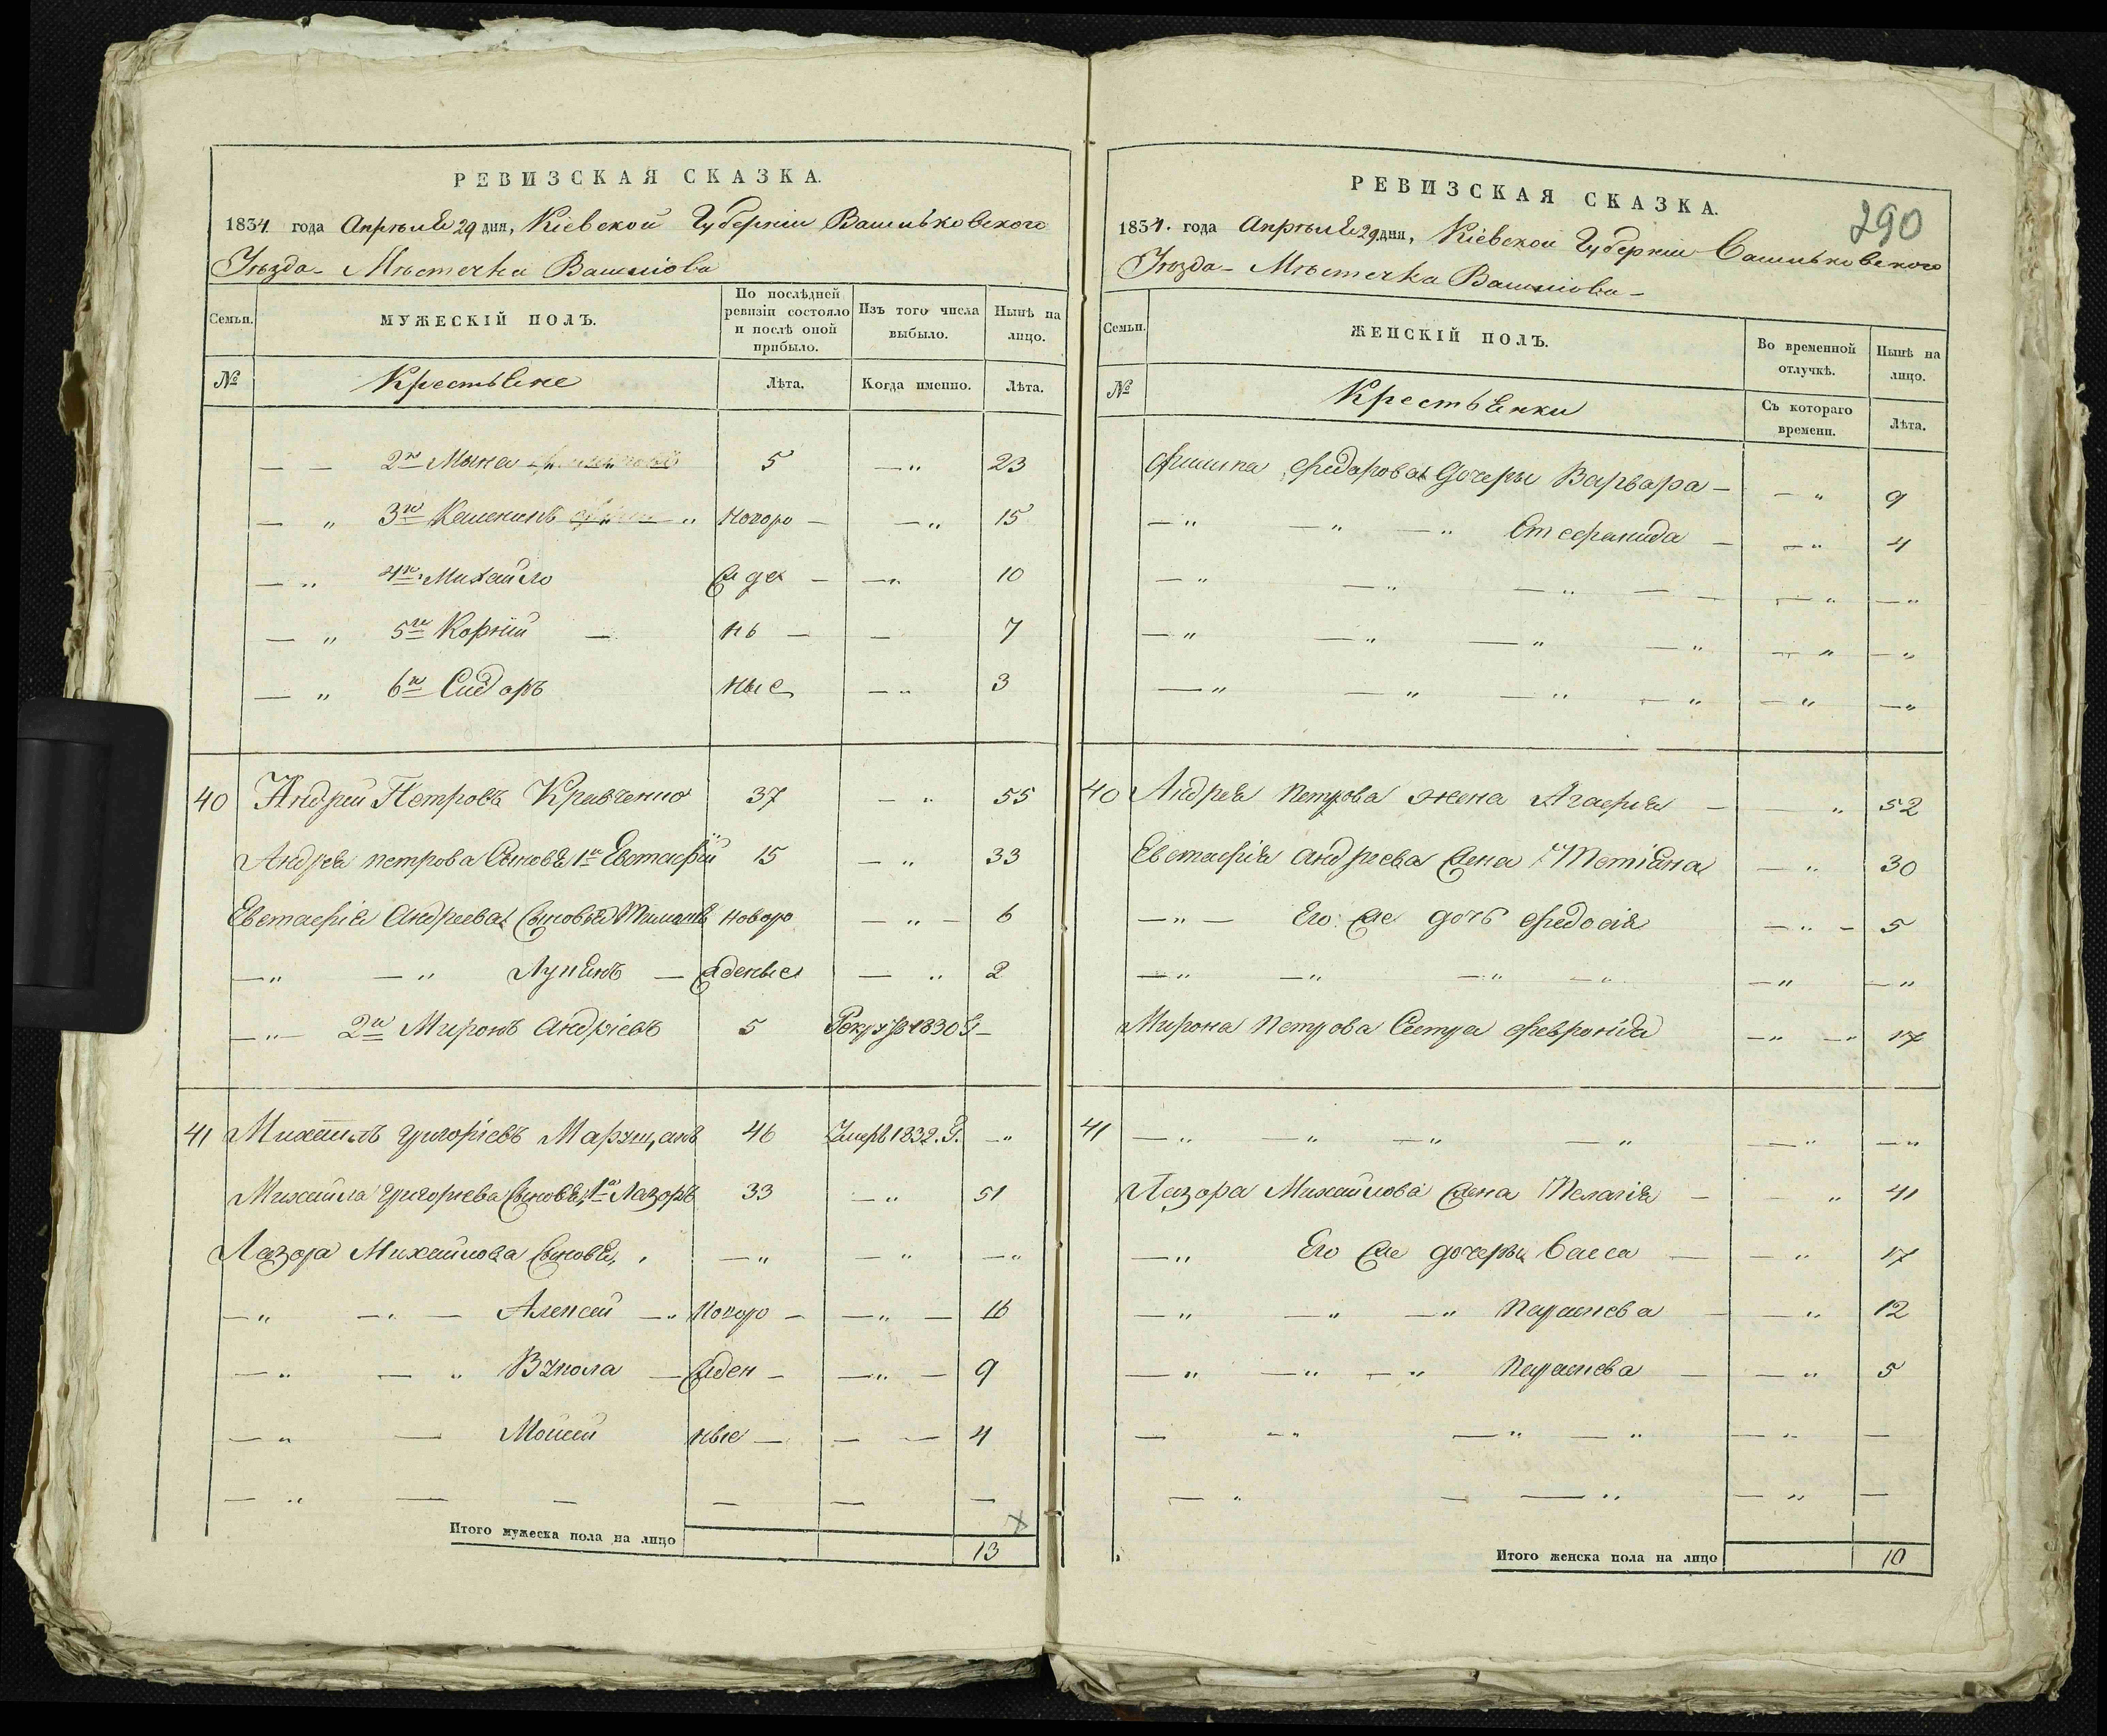 РЕВИЗСКАЯ СКАЗКА.
1834 года Апрѣля 29 дня, Кіевской Губерніи Васильковского
Уѣзда - Мѣстечка
Семьи.
МУЖЕСКІЙ ПОЛЪ.
По послѣдней ревизіи состояло и послѣ оной прибыло.
Изъ того числа выбыло.
Нынѣ на лицо.
№
Крестьяне
Лѣта.
Когда именно.
Лѣта.
— — 2й Мына 5 — „ 23
— „ 3й „ новоро — — „ 15
— „ 4й Михайло — — „ 10
— „ 5й Корній — нъ — — 7
— „ 6й Сидоръ ные — „ 3
40 Андрей Петровъ Кравченко 37 — „ 55
Андрея петрова Сыновья 1й Евстафій 15 — „ 33
Евстафія Андреева Сыновья новоро — „ — 6
— „ — „ Лупянъ — жденые — „ 2
— „ — 2й Миронъ Андріевъ 5 Рекру въ 1830 Г —
41 Михайлъ григоріевъ 46 Умеръ 1832. Г. — „
Михайла григорьева Сыновья, 1й Лазоръ 33 — „ 51
Лазора Михайлова Сыновья, — „ — „ — „
— „ — „ — Алексей — „ Новоро — — „ — 16
— „ — „ Вѣкола — жден — — „ — 9
— „ — Мойсей ные — — — 4
— „ — — — — —
Итого мужеска пола на лицо 13
РЕВИЗСКАЯ СКАЗКА.
290
1834. года Апрѣля 29 дня, Кіевской Губерніи Васильковского
Уѣзда - Мѣстечка
Семьи.
ЖЕНСКІЙ ПОЛЪ.
Во временной отлучкѣ.
Нынѣ на лицо.
№
Крестьянки
Съ котораго времени.
Лѣта.
Филипа Федарова Дочеры Варвара — — „ 9
— „ — „ — „ — — „ 4
— „ — „ — „ — — — „ — „
— „ — „ — „ — „ — „ — „
— „ — „ — „ — „ — „ — „
40 Андрея петрова жена Агафія — — „ 52
Евстафія андреева жена Тетіяна — „ 30
— „ — Его же дочь Федосія — „ — 5
— „ — „ — „ — „ — „ — „
Мирона Петрова Сестра Февронія — „ — „ 17
41 — „ — „ — „ — „ — „ — „
Лазора Михайлова жена Пелагія — — „ 41
— „ Его же дочеры Васса — — „ 17
— „ — „ — „ Параскева — — „ 12
— „ — „ — „ Параскева — — „ 5
— — „ — „ — „ — „ —
— „ — — „ — „ —
Итого женска пола на лицо 10